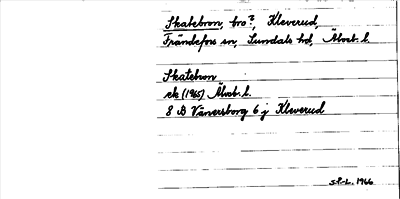 Skatebron, bro?, Kleverud,
Frändefors sn, Sundals hd, Älvsb. l.
Skatebron
ek (1965) Älvsb. l.
8 B Vänersborg 6 j Kleverud
S.F-L. 1966